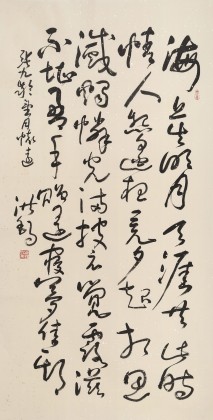 海上生明月天涯共此時
情人怨遙夜竟夕起相思
滅燭憐光滿披衣覺露滋
不堪盈手贈還寢夢佳期
張九齡望月懷遠